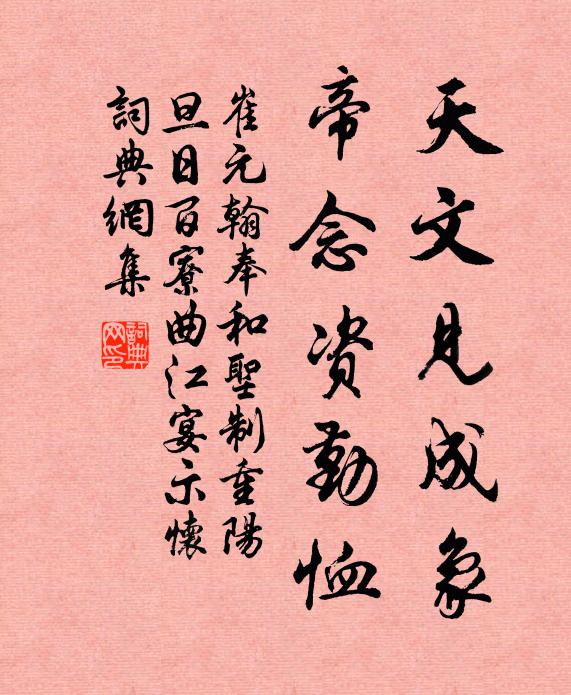 天文見成象
帝念資勤恤
崔元翰奉和聖制重陽
旦日百寮曲江宴示懷
詞典網集
詞典网印